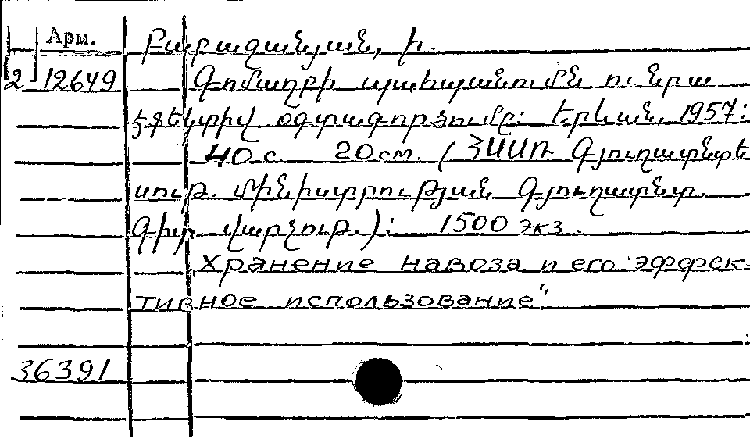 Арм.
Բարազանյան, Ի.
2-12649
Գոմաղբի պահպանումն ու նրա
էֆեկտիվ օգտագործումը: Երևան, 1957:
40 с. 20 см. (ՀՍՍՌ Գյուղատնտե
սութ. մինիստրության Գյուղատնտ.
գիտ վարչութ.): 1500 экз.
"Хранение навоза и его эффек-
тивное использование".
36391